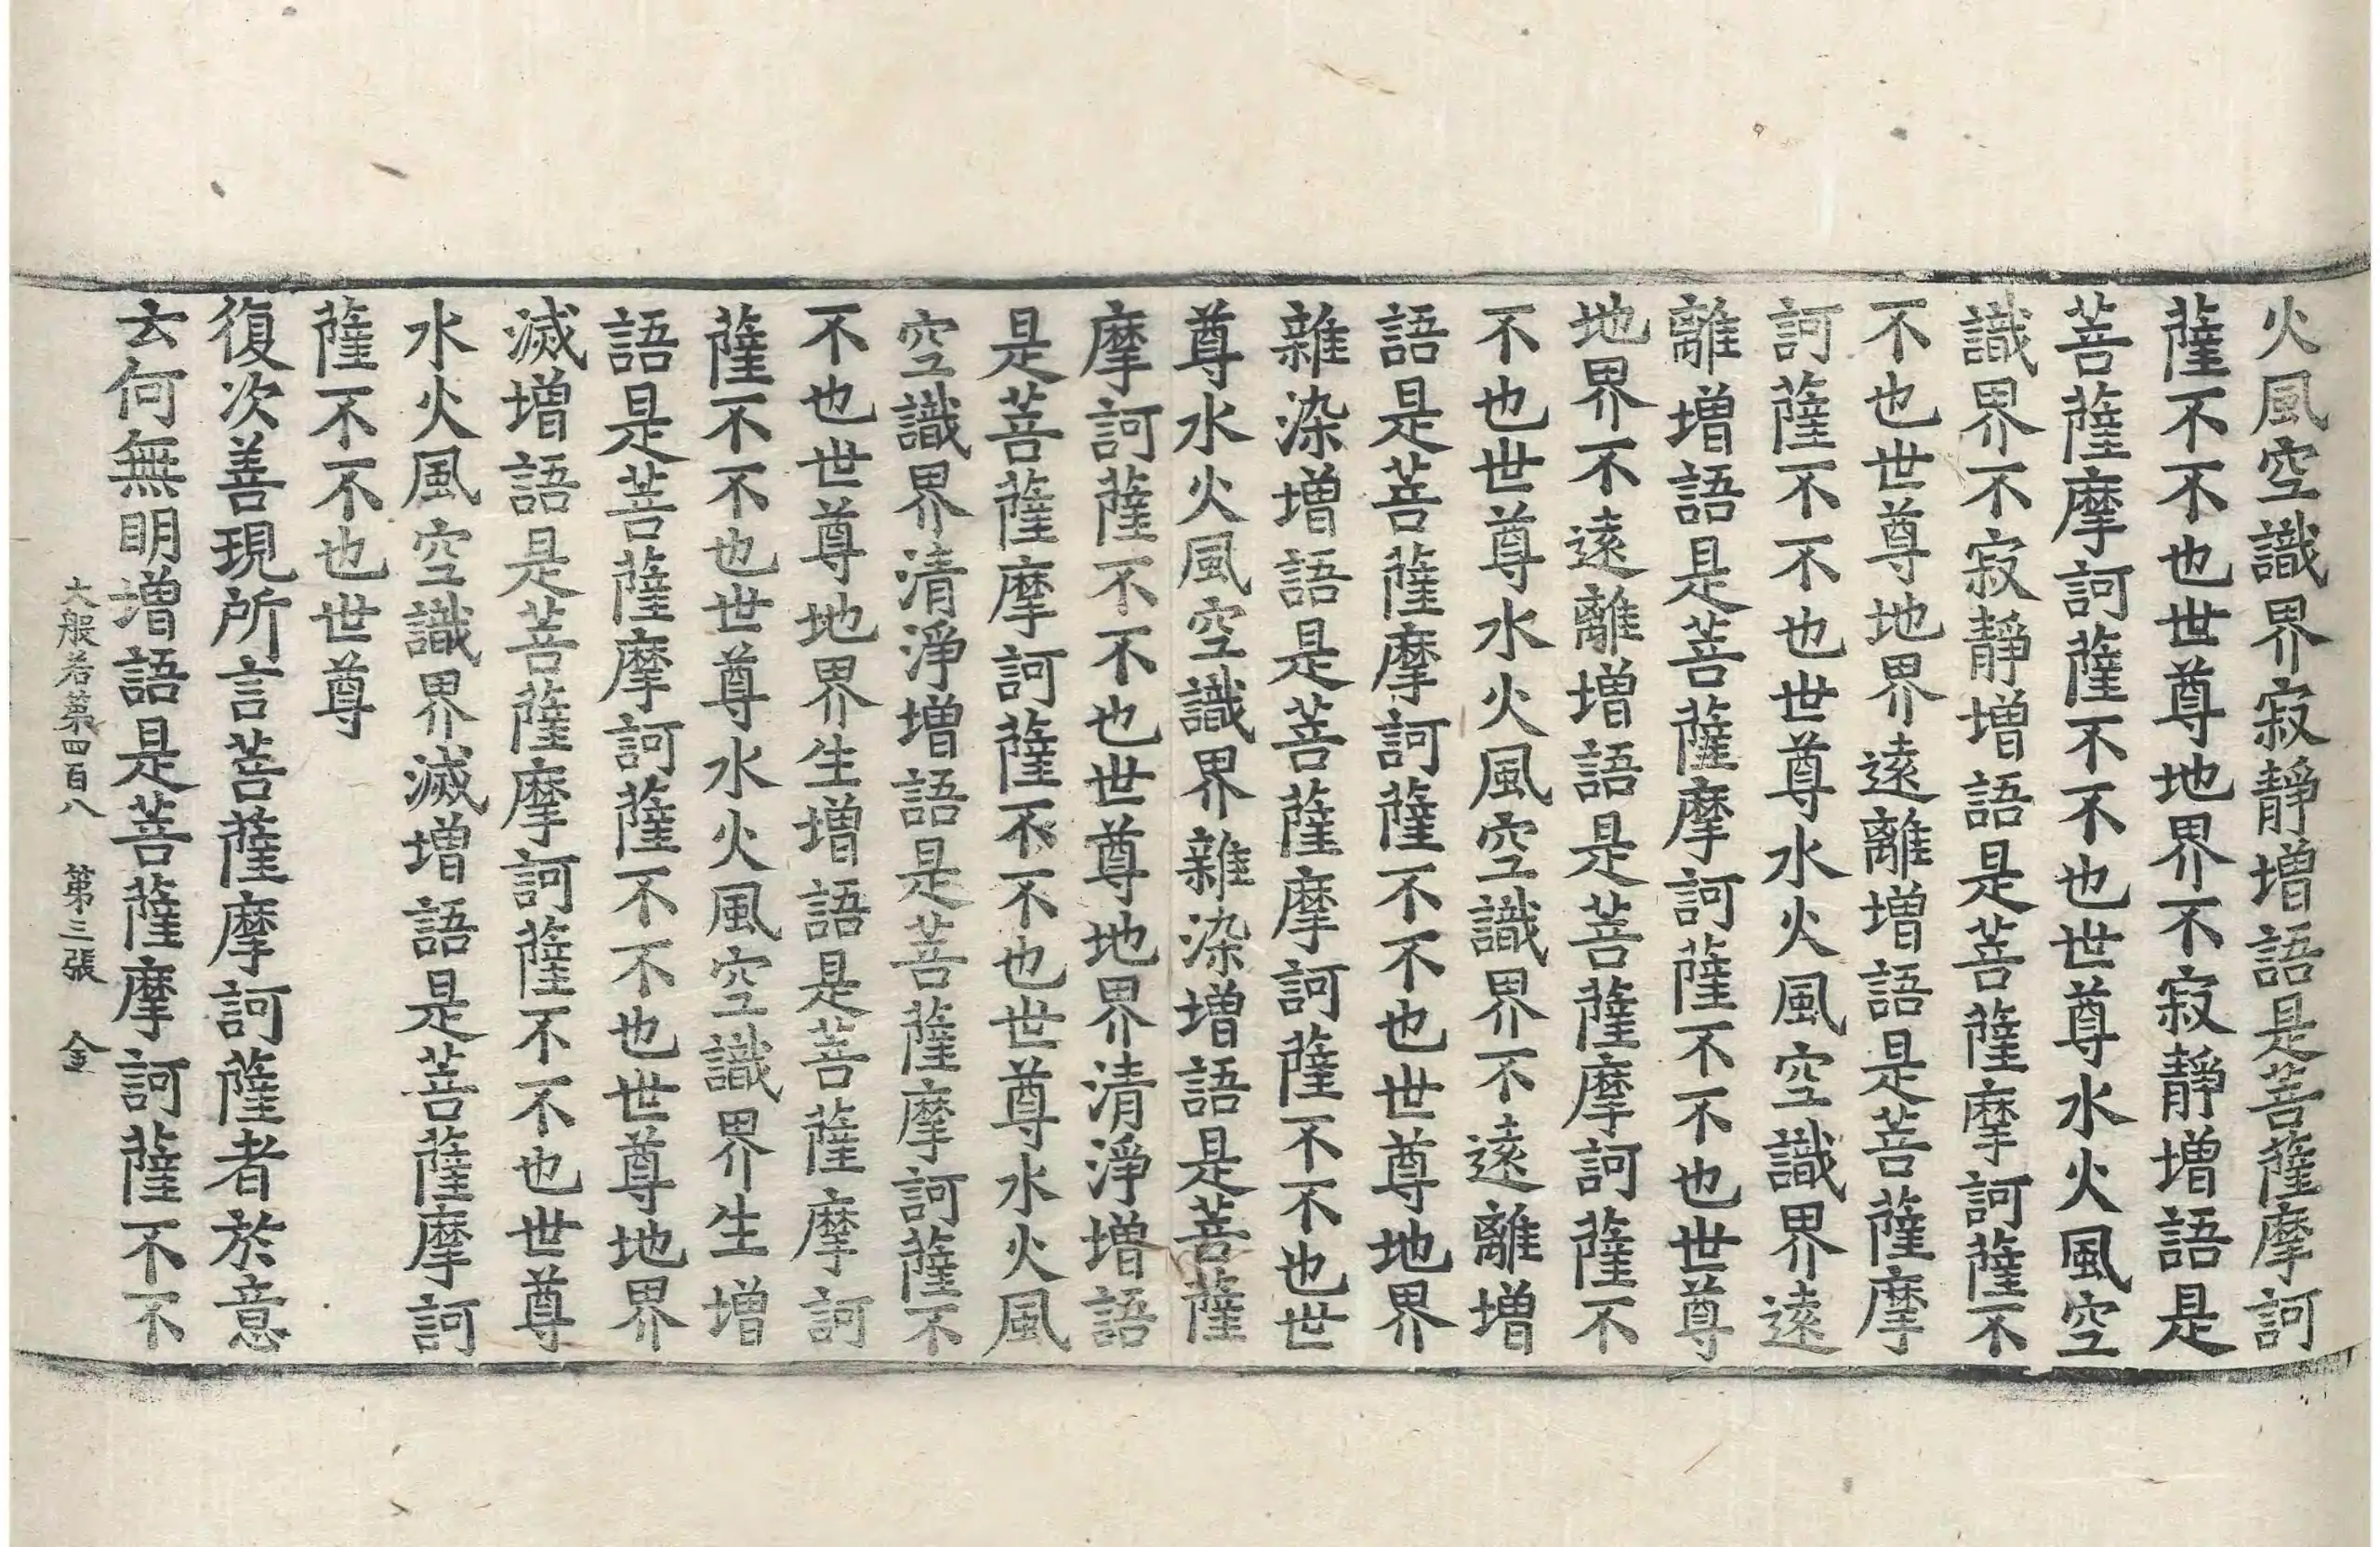 火風空識界寂靜增語是菩薩摩訶
薩不不也世尊地界不寂靜增語是
菩薩摩訶薩不不也世尊水火風空
識界不寂靜增語是菩薩摩訶薩不
不也世尊地界遠離增語是菩薩摩
訶薩不不也世尊水火風空識界遠
離增語是菩薩摩訶薩不不也世尊
地界不遠離增語是菩薩摩訶薩不
不也世尊水火風空識界不遠離增
語是菩薩摩訶薩不不也世尊地界
雜染增語是菩薩摩訶薩不不也世
尊水火風空識界雜染增語是菩薩
摩訶薩不不也世尊地界清淨增語
是菩薩摩訶薩不不也世尊水火風
空識界清淨增語是菩薩摩訶薩不
不也世尊地界生增語是菩薩摩訶
薩不不也世尊水火風空識界生增
語是菩薩摩訶薩不不也世尊地界
滅增語是菩薩摩訶薩不不也世尊
水火風空識界滅增語是菩薩摩訶
薩不不也世尊
復次善現所言菩薩摩訶薩者於意
云何無明增語是菩薩摩訶薩不不
大般若第四百八 第三張 金